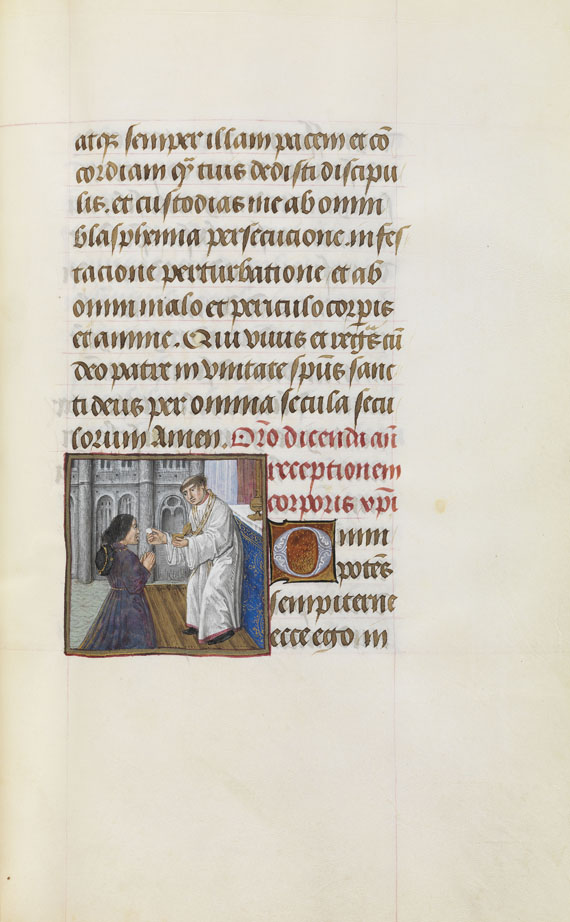 atq; semper illam pacem et cō
cordiam qͣ tuis dedisti discipu
lis. et custodias me ab omni
blasphemia persecucione. infes
tacione perturbatione et ab
omni malo et periculo corpis
et anime. Qui viuis et regͣs cū
deo patre in vnitate spūs sanc
ti deus per omnia secula secu
lorum Amen. Oro dicenda an̄
recceptionem
corporis xpi
Omni
potēs
sempiterne
ecce ego in